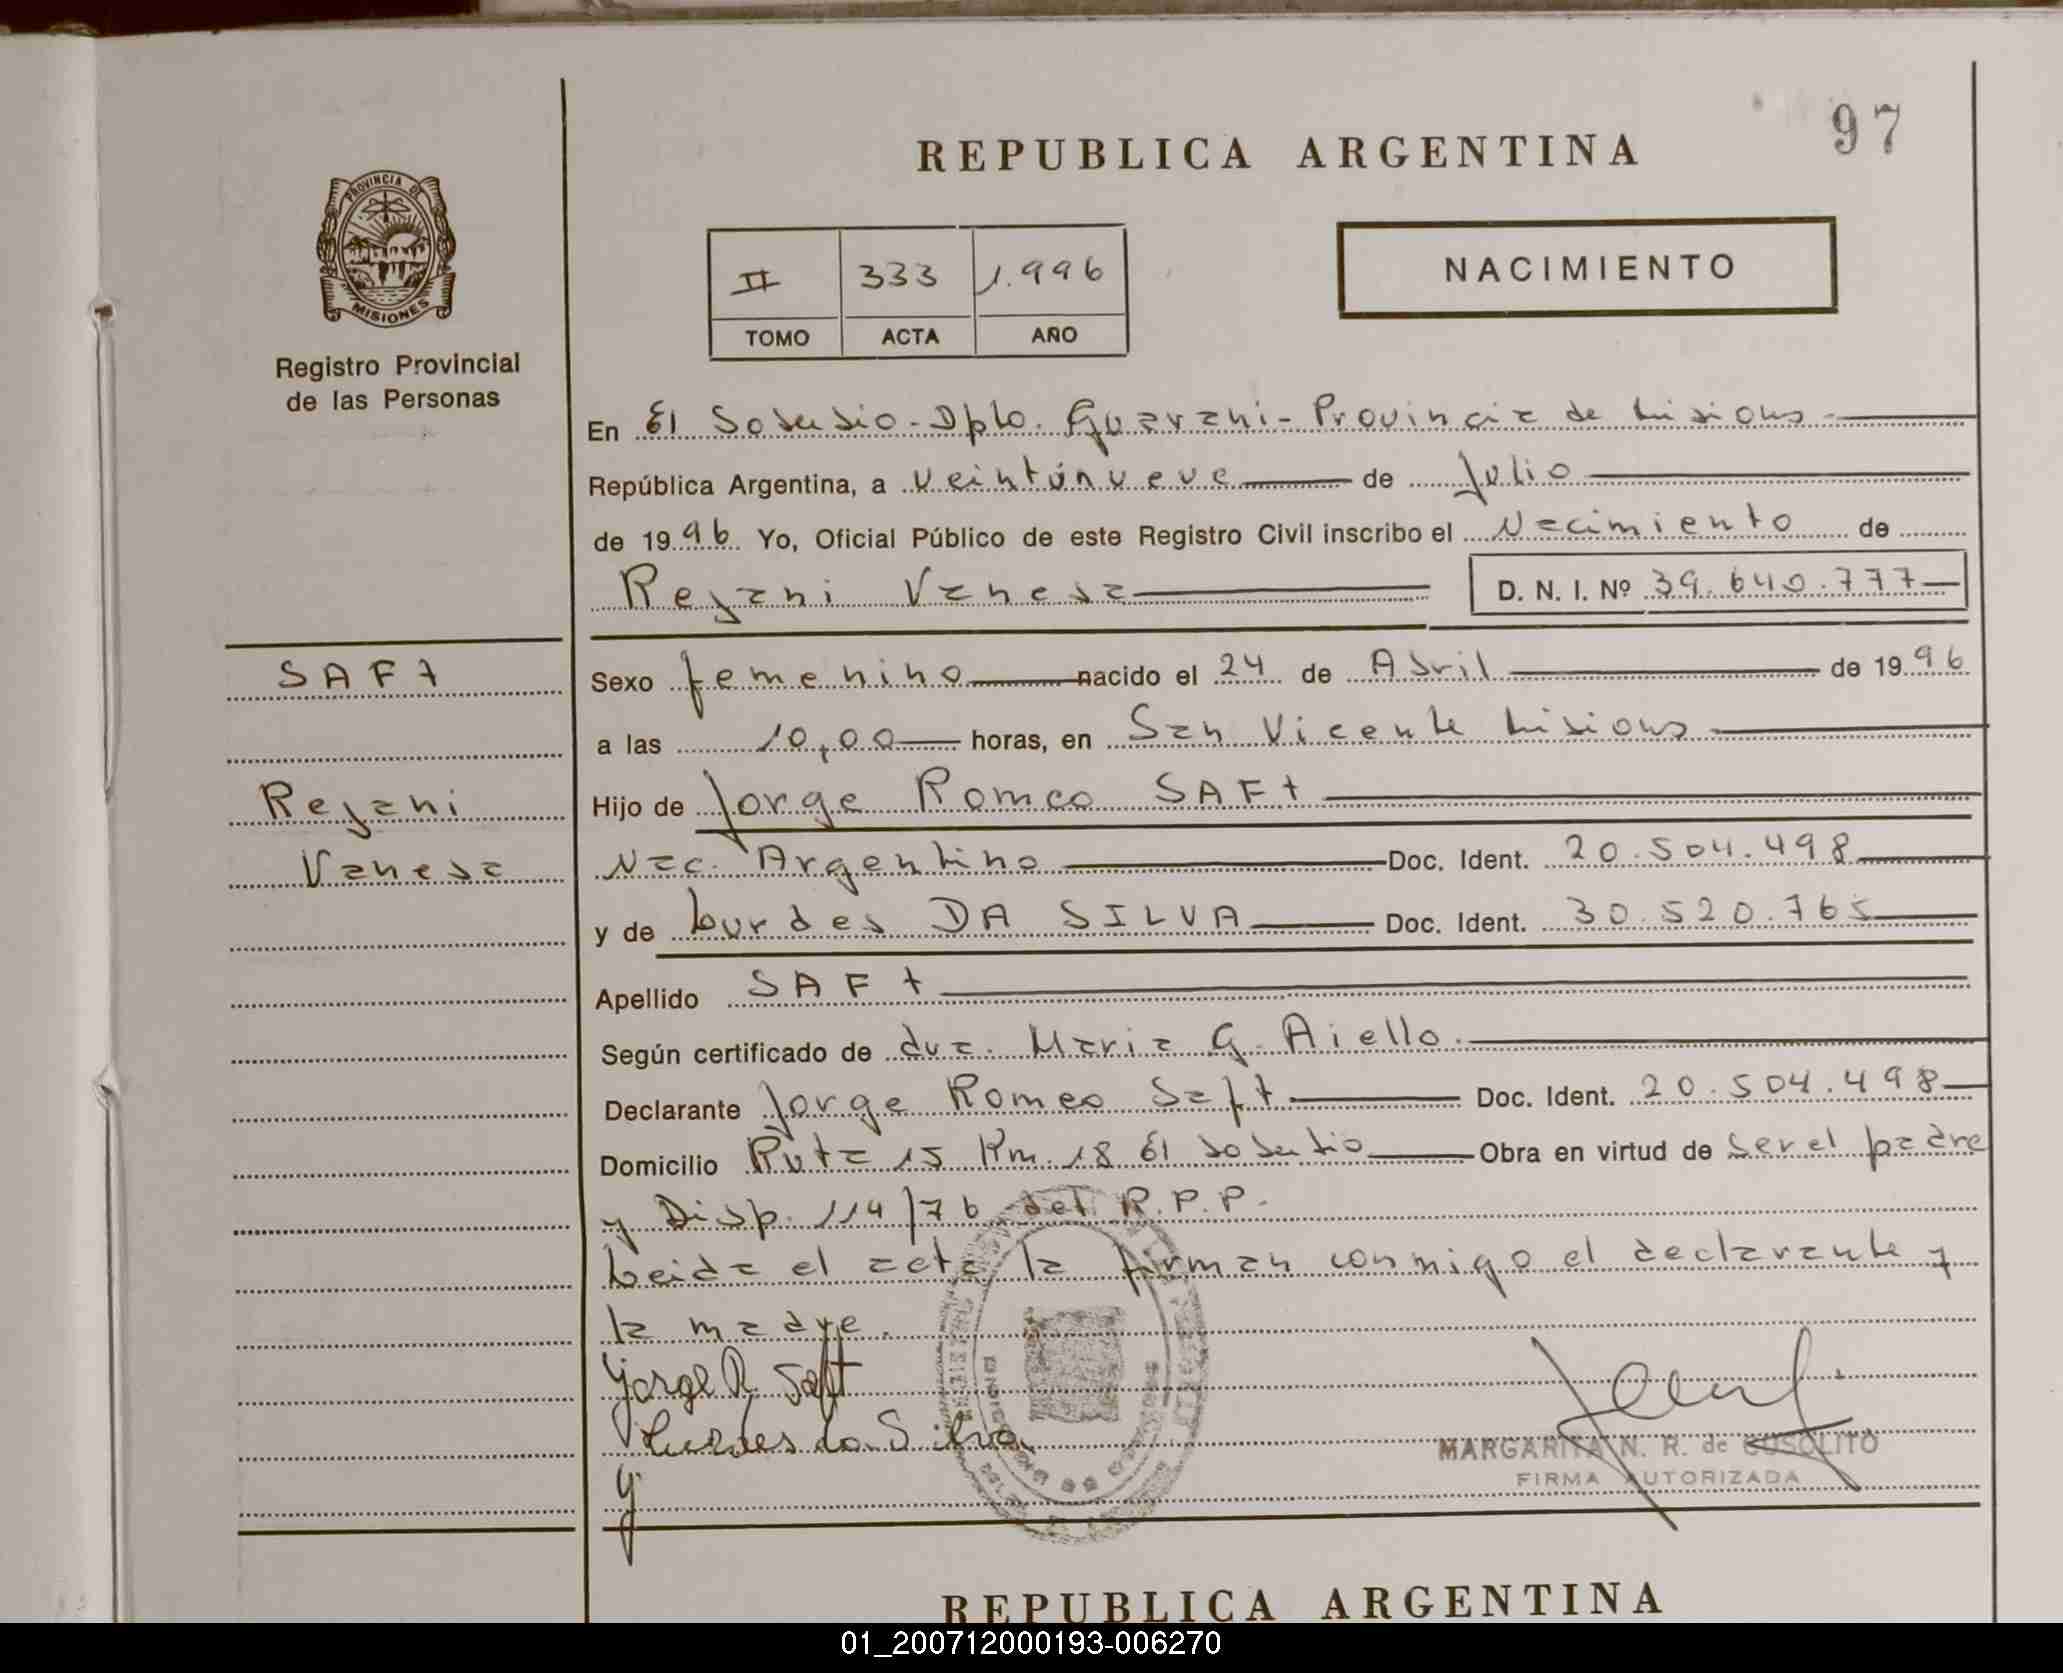 97
REPUBLICA ARGENTINA
PROVINCIA DE
MISIONES
Registro Provincial
de las Personas
II 333 1.996
TOMO ACTA AÑO
NACIMIENTO
En El Soberbio - Dpto. Guarani - Provincia de Misiones
República Argentina, a veintinueve de Julio
de 1996 Yo, Oficial Público de este Registro Civil inscribo el Nacimiento de
Rejani Vanesa D. N. I. Nº 39.640.777
SAFt
Rejani
Vanesa
Sexo femenino nacido el 24 de Abril de 1996
a las 10,00 horas, en San Vicente Misiones
Hijo de Jorge Romeo SAFt
Nac. Argentino Doc. Ident. 20.504.498
y de Lurdes DA SILVA Doc. Ident. 30.520.765
Apellido SAFt
Según certificado de dra. Maria G. Aiello.
Declarante Jorge Romeo Saft Doc. Ident. 20.504.498
Domicilio Ruta 15 Km. 18 El Soberbio Obra en virtud de ser el padre
y Disp. 114/76 del R.P.P.
Leida el acta la firman conmigo el declarante y
la madre.
Jorge R Saft
Lurdes da Silva
MARGARITA N. R. de CUSOLITO
FIRMA AUTORIZADA
REPUBLICA ARGENTINA
01_200712000193-006270